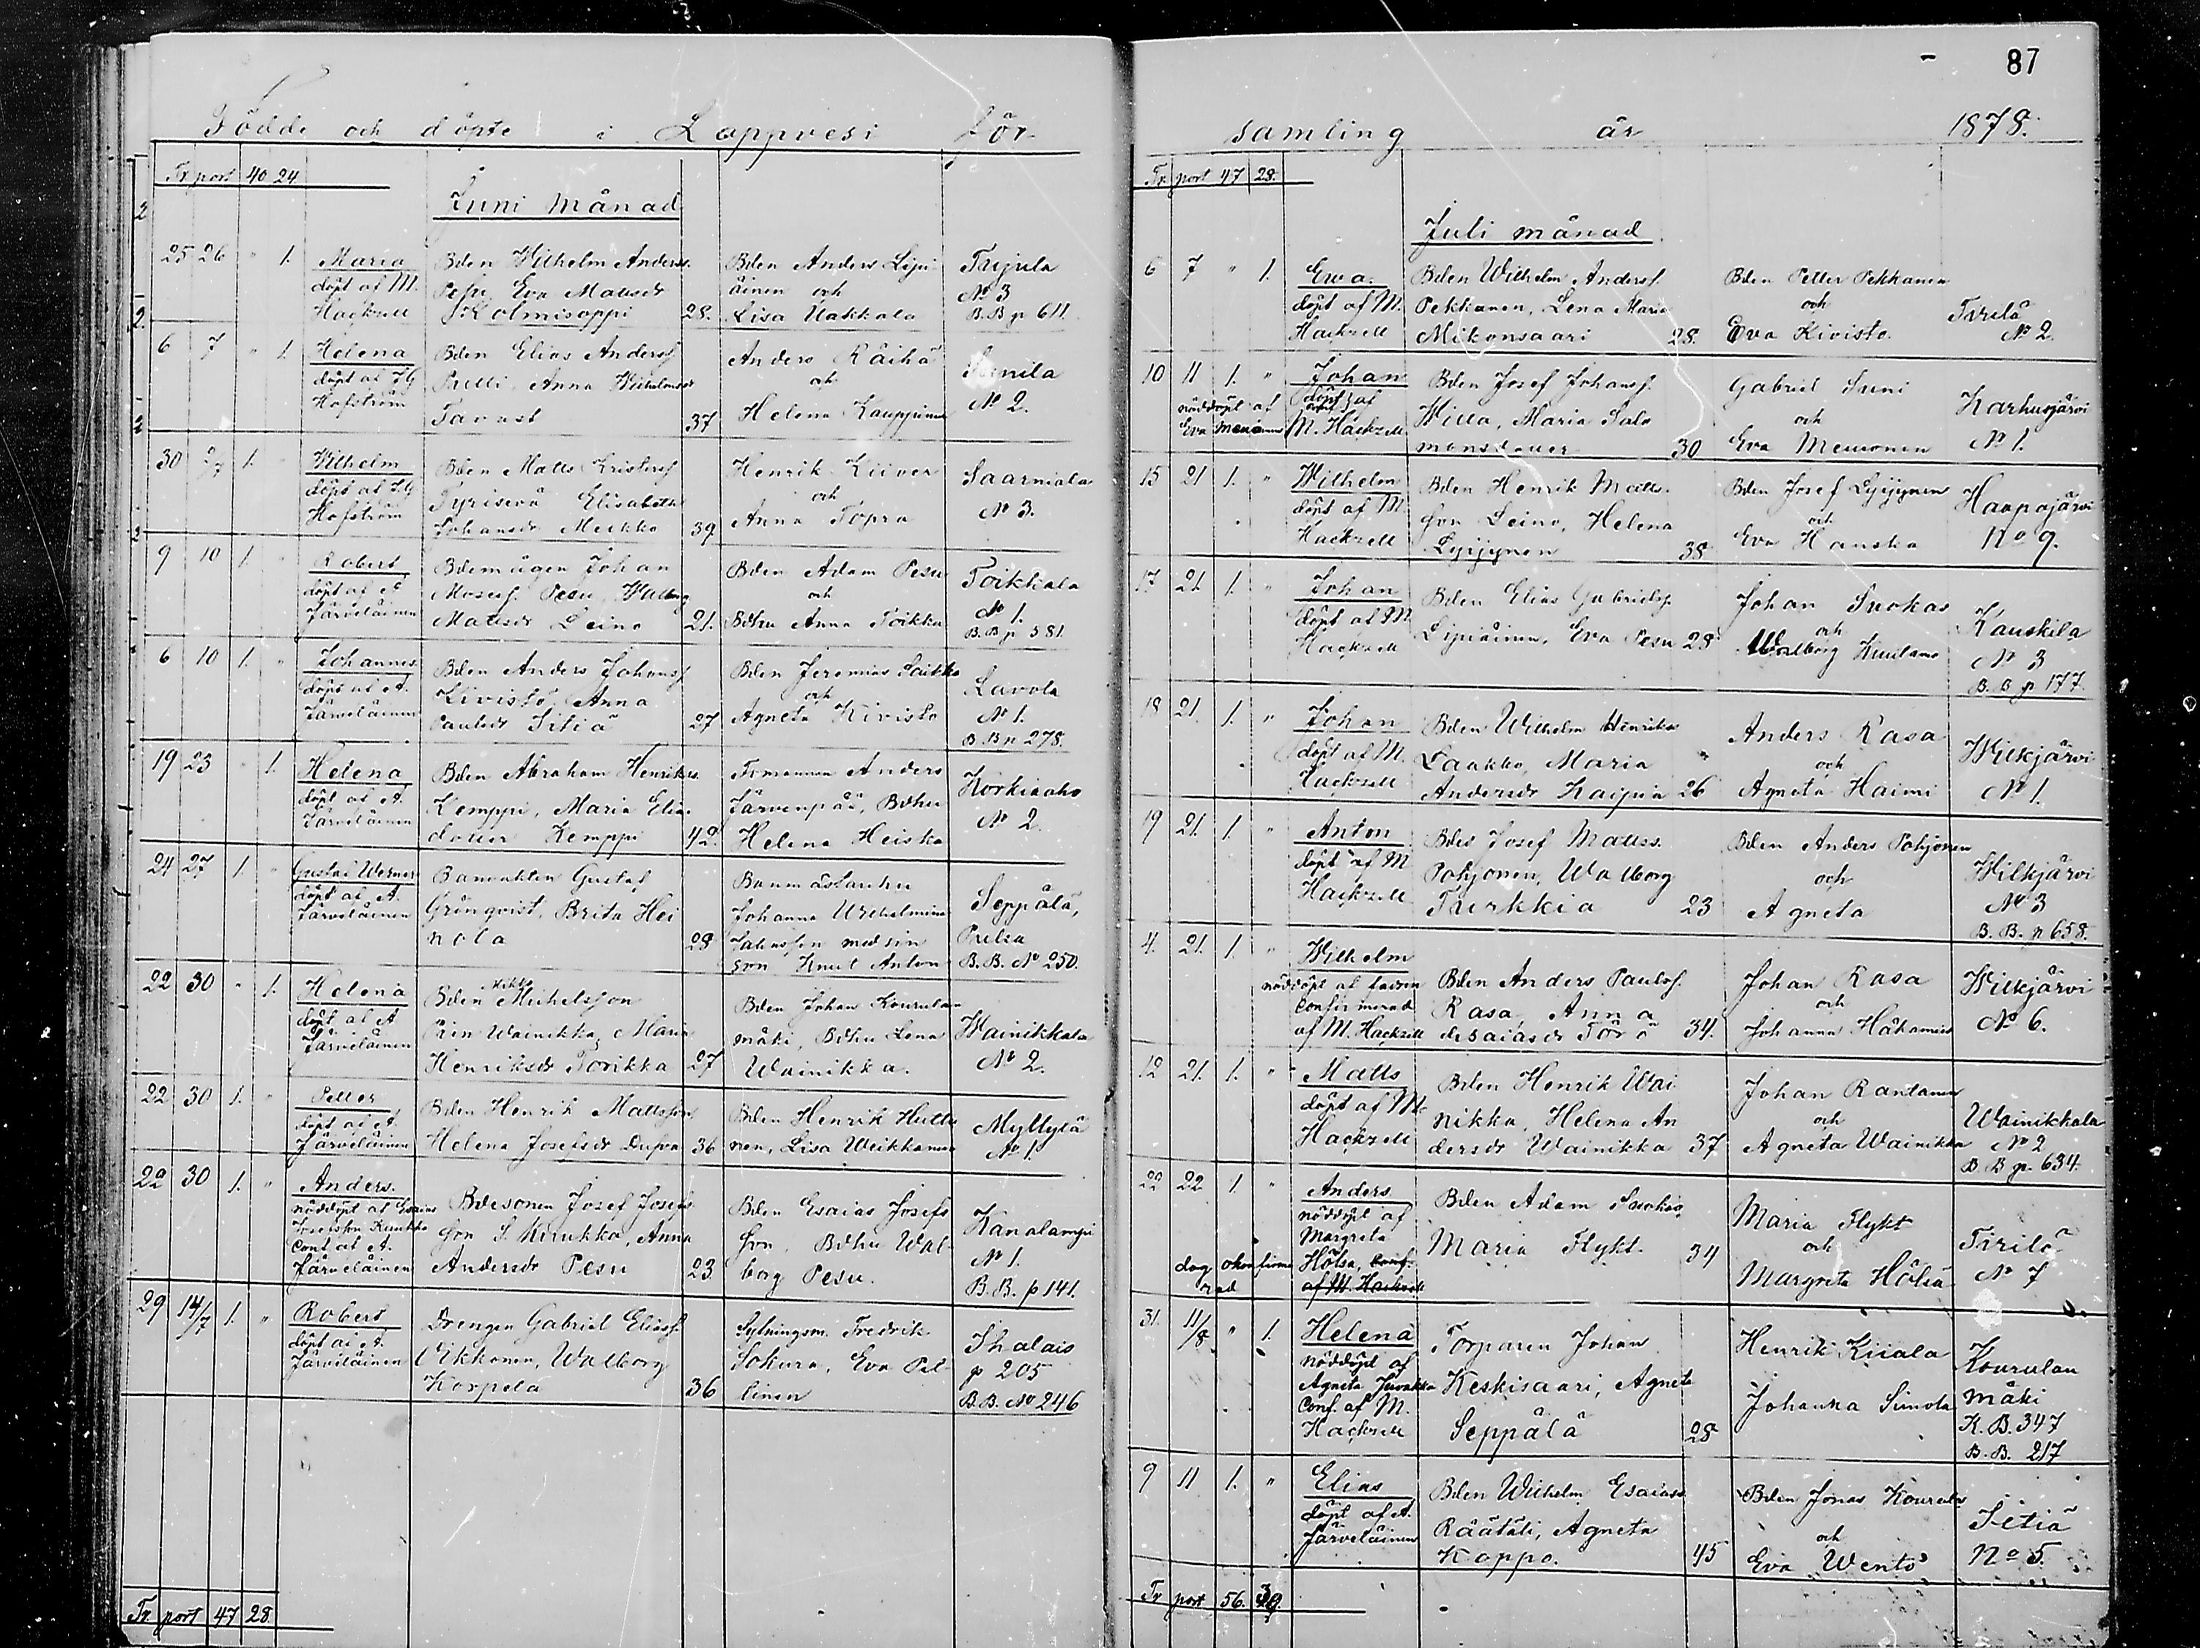 87
Födde och döpte i Lappvesi för
samling år 1878.
Tr port 40 24
Juni månad
25 26 " 1. Maria Bden Wilhelm Anders. Bden Anders Lipi Tujula
döpt af M. Eva Matisdr äinen och No 3
Hackzell Kolmisoppi 28. Lisa Uakkala B.B p 611
6 7 " 1. Helena Bden Elias Anderss Anders Räihä
döpt af J.G Pulli, Anna Wilhelmsdr och No 2.
Hofström Tavast 37 Helena Kauppinen
30 2/7 1. " Wilhelm Bden Matts Kristerss Henrik Kiiver Saarniala
döpt af J.G Tyrisevä Elisabeth och No 3.
Hofström Johansdr Meikko 39 Anna Topra
9 10 1. " Robert Bdemågen Johan Bden Adam Pesu Toikkala
döpt af A Mosesf. Pesu, Walborg och No 1.
Järveläinen Matisdr Leino 21. Bdhu Anna Toikka B.B p 581.
6 10 1. " Johannes Bden Anders Johanss Bden Jeremias Saikko Lavola
döpt af A. Kivistö, Anna och No 1.
Järveläinen Paulsdr Sitiä 27 Agneta Kivistö B.B p 278.
19 23 " 1. Helena Bden Abraham Henriks. Anders Korkiaaho
döpt af A. Kemppi, Maria Elias Järvenpää, Bdhu No 2.
Järveläinen dotter Kemppi 42. Helena Heiska
24 27 1. " Gustaf Werner Banvakten Gustaf Seppälä,
döpt af A. Grönqvist, Brita Hei Johanna Wilhelmina Pulsa
Järveläinen nola 28 med sin B.B. No 250.
son Knut Anton
22 30 " 1. Helena Bden Michelsson Bden Johan Kourulan Wainikkala
döpt af A Wainikka, Maria mäki, Bdhu Lena No 2.
Järveläinen Henriksdr Torikka 27 Wainikka.
22 30 1. " Petter Bden Henrik Mattsson Bden Henrik Hutta Myllylä
döpt af A. Helena Josefsdr Dupra 36 nen, Lisa Weikkanen No 1.
Järveläinen
22 30 1. " Anders. Bdesonen Josef Josefs Bden Esaias Josefs Kanalampi
nöddöpt af Esaias son S. Kuukka, Anna son, Bdhu Wal- No 1.
Josefsson Kuukka Andersdr Pesu 23 borg Pesu. B.B. p 141.
Conf af A.
Järveläinen
29 14/7 1. " Robert Drengen Gabriel Eliasf. Sytningsm. Fredrik Ihalais
döpt af A. Ukkonen, Walborg Sokura, Eva Pel p 205
Järveläinen Korpela 36 linen B.B. No 246
Tr. port 47 28
Tr. port 47 28.
Juli månad
6 7 " 1. Ewa. Bden Wilhelm Andersf. Bden Petter Pekkanen Tirilä
döpt af M. Pekkanen, Lena Maria och No 2.
Hackzell Mikonsaari 28. Eva Kivistö.
10 11 1. " Johan Bden Josef Johansf. Gabriel Suni Karhusjärvi
nöddöpt af Willa, Maria Salo och No 1.
Eva M. Hackzell monsdotter 30 Eva Memonen
15 21 1. " Wilhelm Bden Henrik Matts- Bden Josef Lyijynen Haapajärvi
döpt af M son Leino, Helena och No 9.
Hackzell Lyijynen 38 Eva Hanska
17 21 1. " Johan Bden Elias Gabrielsf. Johan Suokas Kauskila
döpt af M Lipiäinen, Eva Pesu 28 och No 3
Hackzell Walborg B.B p 177.
18 21. 1. " Johan Bden Wilhelm Henriks Anders Rasa Wilkjärvi
döpt af M. Laakko, Maria och No 1.
Hackzell Andersdr Kaipia 26 Agneta Haimi
19 21. 1. " Anton Bdes Josef Mattss. Bden Anders Pohjonen Wilkjärvi
döpt af M Pohjonen, Walborg och No 3
Hackzell Turkkia 23 Agneta B.B. p 658.
4. 21. 1. " Wilhelm
nöddöpt af fadren Bden Anders Paulsf. Johan Rasa Wilkjärvi
Confirmerad Rasa, Anna och No 6.
af M. Hackzell Esaiasdr Törö 34. Johanna
12 21. 1. " Matts Bden Henrik Wai Johan Rantanen Wainikkala
döpt af M. nikka, Helena An och No 2
Hackzell dersdr Wainikka 37 Agneta Wainikka B.B p. 634.
22 22 1. " Anders Bden Adam Suokas, Maria Flykt Tirilä
nöddöpt af Maria Flykt. 34 och No 7
Margreta Margreta Hölsä
Hölsä, conf.
af M. Hackzell
dog okonfirme
rad
31. 11/8 " 1. Helena Torparen Johan Henrik Kiiala Kourulan
nöddöpt af Keskisaari, Agneta Johanna Simola mäki
Agneta Seppälä 28 K.B. 347
Conf. af M. B.B. 217
Hackzell
9 11 1. " Elias Bden Wilhelm Esaiass Bden Jonas Kourula Sitiä
döpt af A. Räätäli, Agneta och No 5.
Järveläinen Kappo. 45 Eva Wento
Tr port 56.